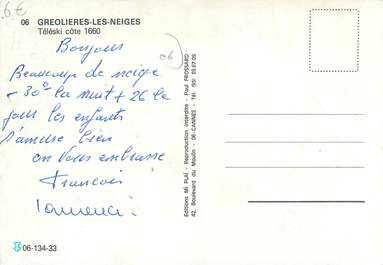 6€
06 GREOLIERES-LES-NEIGES
Téléski côte 1660
06
Bonjour
Beaucoup de neige
- 30° la nuit + 26 le
jour les enfants
s'amuse bien
on vous embrasse
Francois
Editions MI PLAÏ - Reproduction interdite - Paul FROSSARD
42, Boulevard du Moulin - 06-CANNES - Tél. (93)
06-134-33